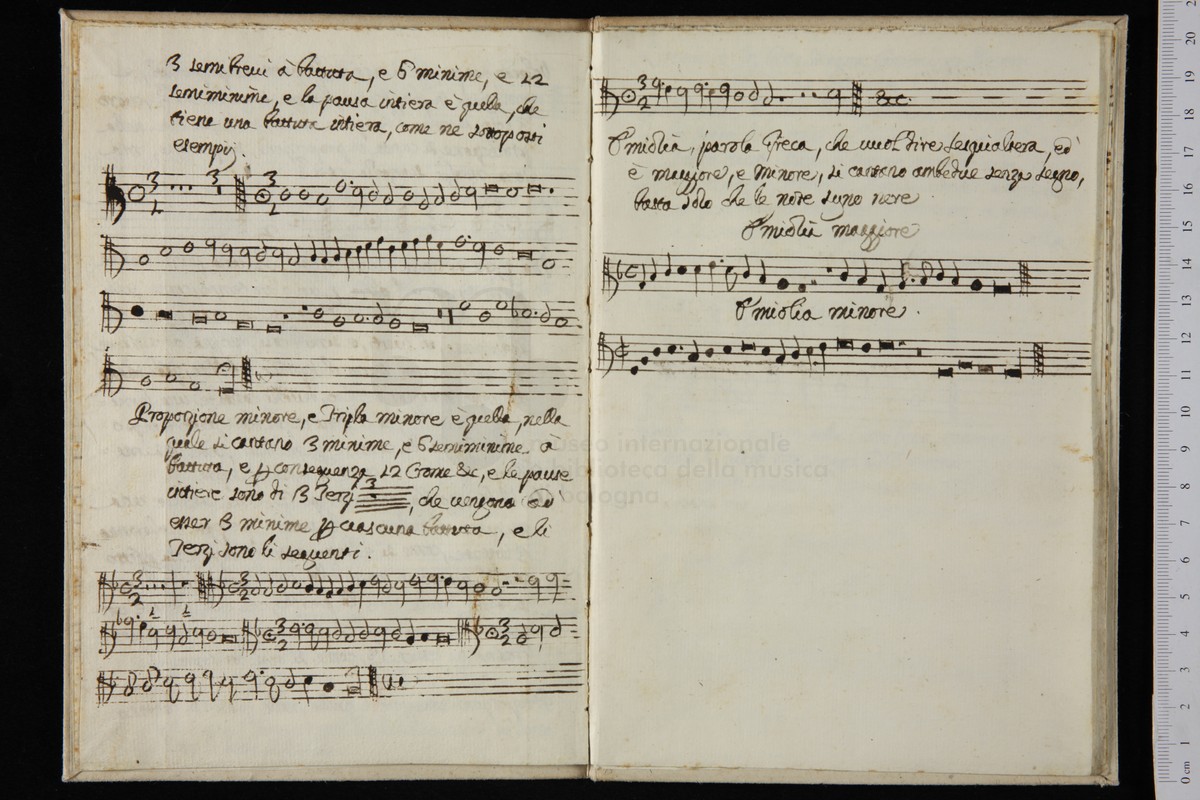 3 semibrevi à battuta, e 6 minime, e 12
semiminime, e la pausa intiera è quella, che
tiene una battuta intiera, come ne sottoposti
esempij.
Proporzione minore, e Tripla minore è quella, nella
quale si cantano 3 minime, e 6 semiminime à
battuta, e p conseguenza 12 Crome &c, e le pause
intiere sono di 3 Terzi 3, che vengono ad
esser 3 minime p ciascuna battuta, e li
Terzi sono li sequenti.
&c.
Emiolia, parola Greca, che vuol dire sesquialtera, ed
è maggiore, e minore, si cantano ambedue senza segno,
basta solo che le note siano nere
Emiolia maggiore
Emiolia minore.
museo internazionale
biblioteca della musica
bologna